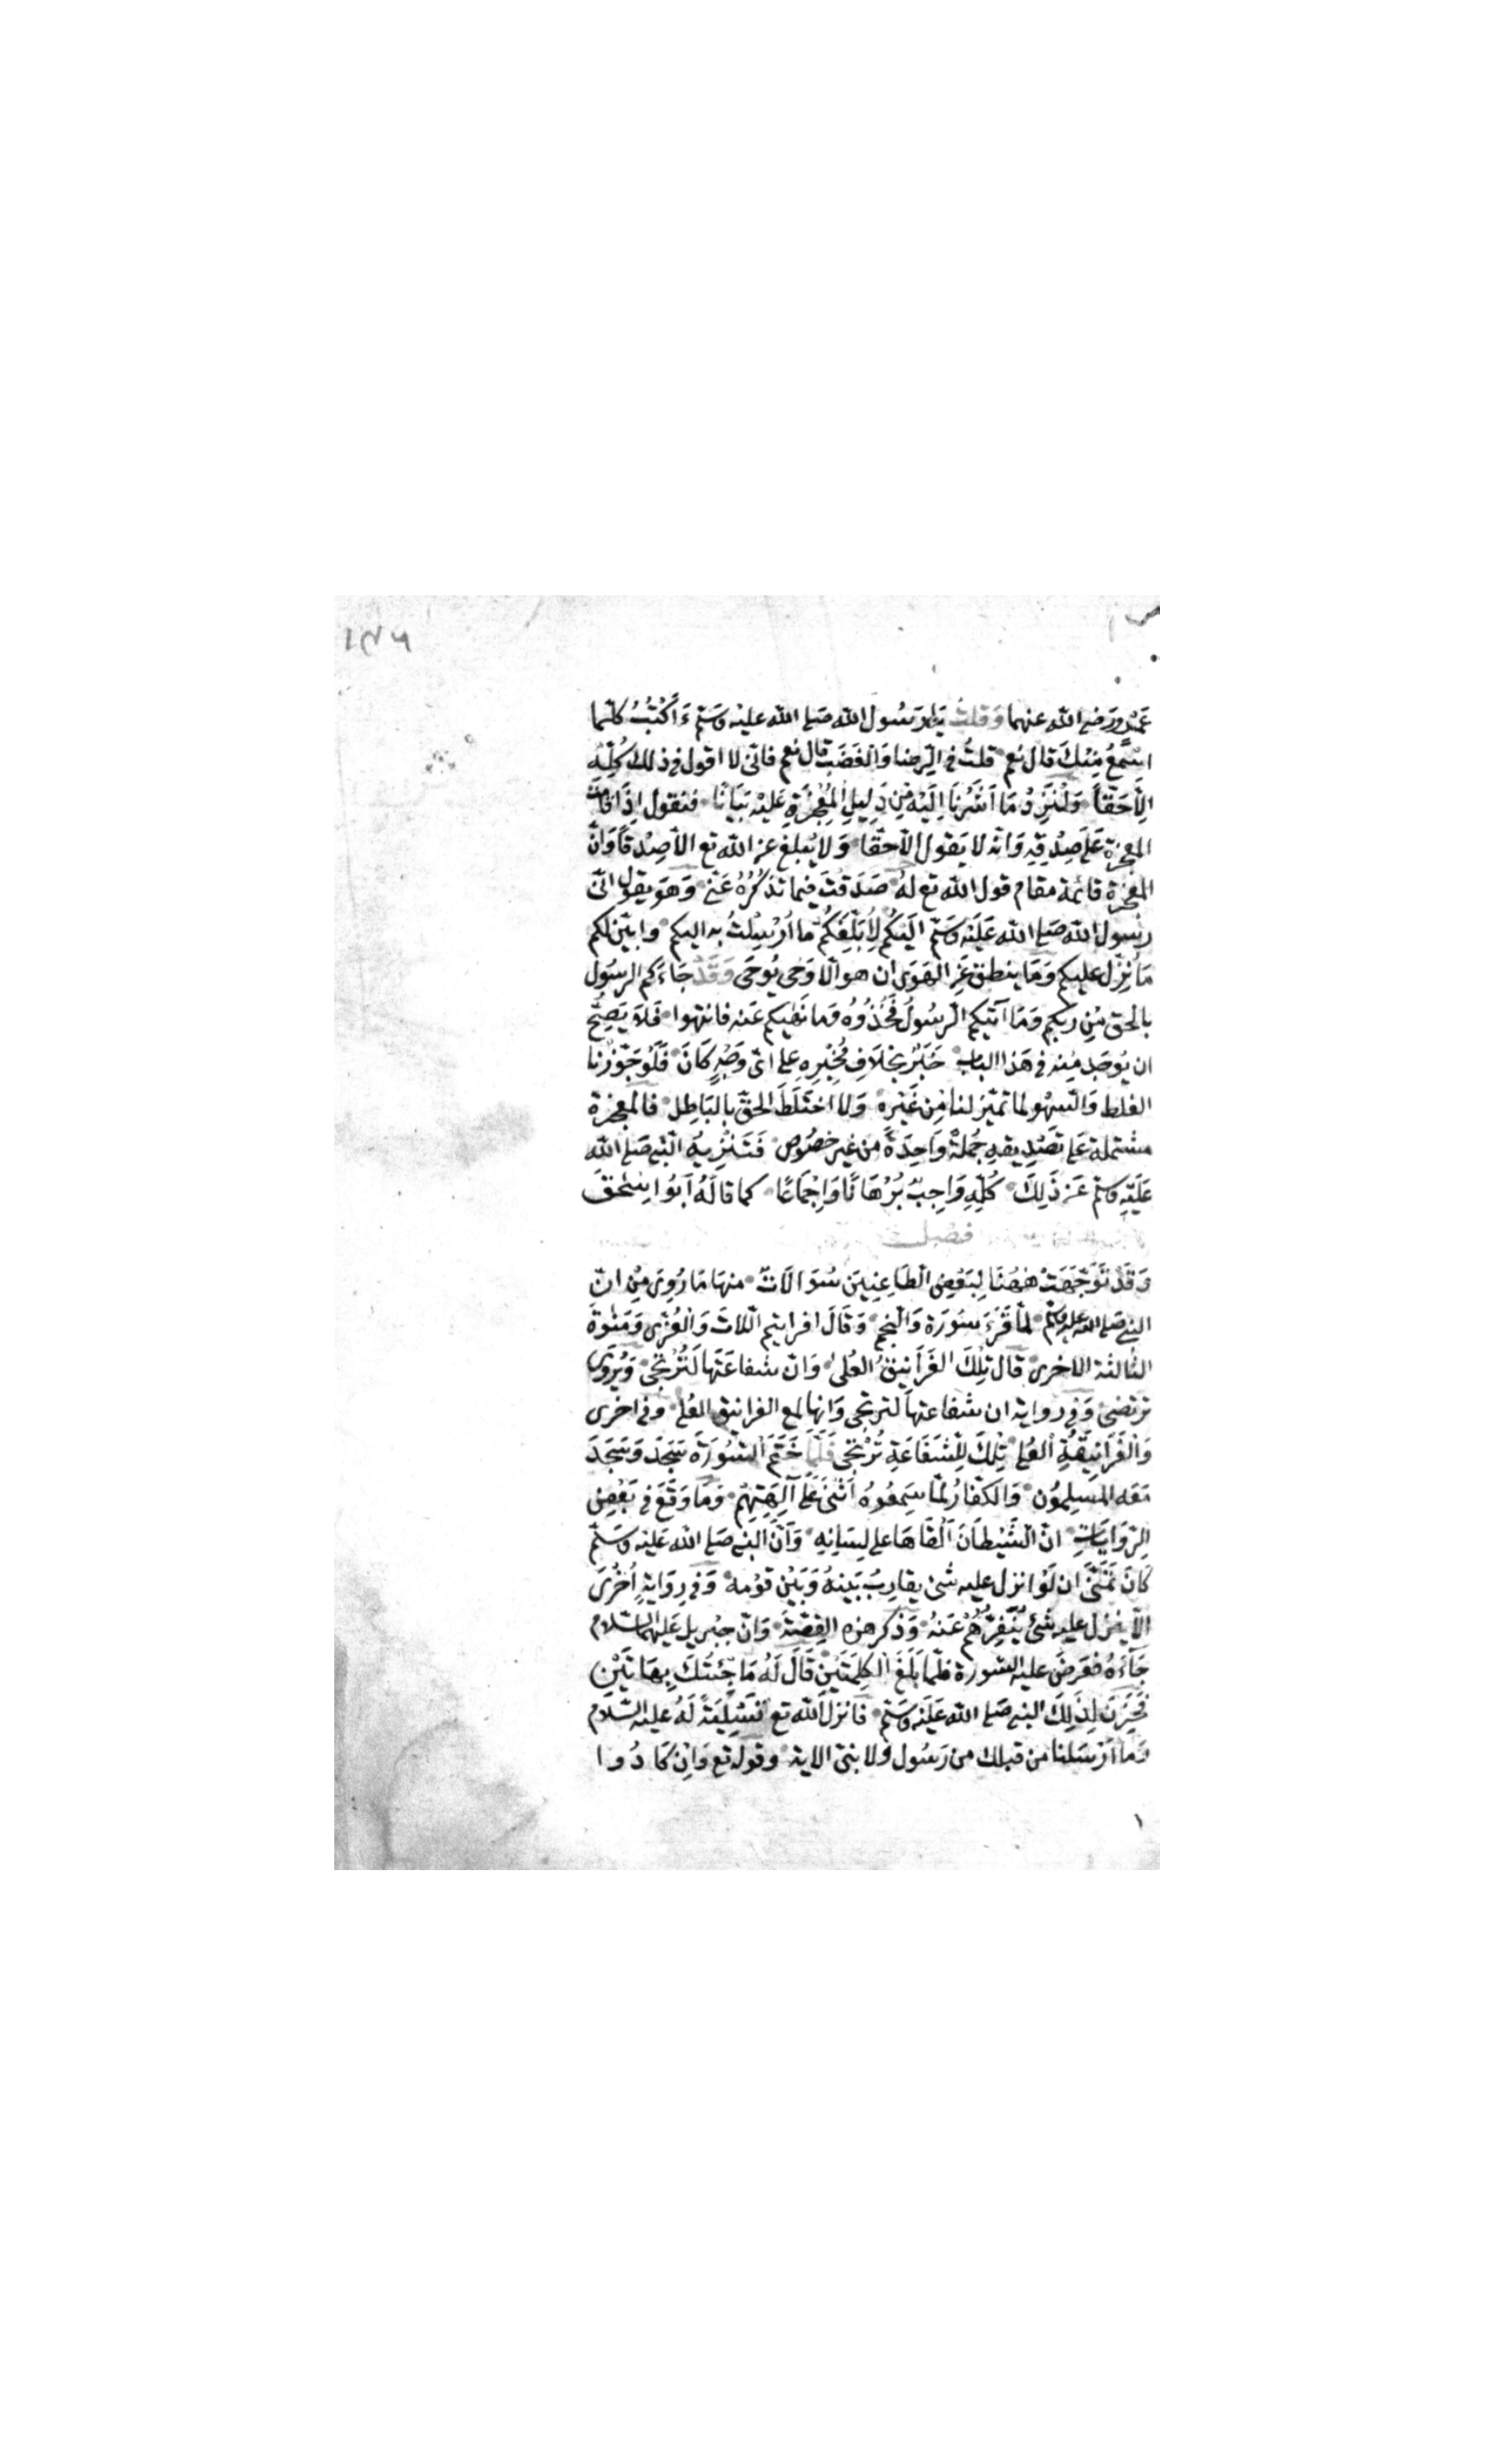 ١٧٦
عَمْرو رَضى الله عنهما وَقلتُ يَا رَسُول الله صَلى الله عليه وسَلم ءَاَكْتُبُ كلّما
اسْمَعُ مِنْكَ قال نعم قلتُ فى الرِضا وَالغَضَب قال نعم فانّى لا اقول فى ذلك كُلِّهِ
اِلَّا حَقّاً وَلْنَزِدْ مَا اَشَرْنَا اِلَيْهِ مِن دَلِيلِ المُعْجِزَةِ عَلَيْه بَيَانًا فنقول اِذَا قامت
المعجزة عَلَى صِدْقِهِ وَانّه لا يَقول الّا حَقّا وَلا يُبلغ عن الله تع الّا صِدْقاً وَانّ
المعجزة قائمة مقام قول الله تع لهُ صَدَقتَ فيما تَذكُرُهُ عَنّى وَهوَ يقول انّى
رسول الله صَلى الله عَلَيْه وَسَلم اليكُم لِاُبَلِّغَكُم ما اُرْسِلْتُ به اليكم وابيّن لكم
مَا نُزِّلَ عليكم وَمَا ينطق عَنِ الهَوَى ان هو الّا وَحى يُوحَى وَقَدْ جَاءَكم الرسُول
بالحق مِن ربكم وَمَا آتيكم الرسُولُ فَخُذُوهُ وَما نَهيكم عَنه فانتهوا فَلَا يَصِحّ
ان يُوجَد مِنه فى هَذا الباب خَبَرٌ بخِلَافِ مُخْبِرِه على اىّ وَجْهٍ كَانَ فَلَوْ جَوّزْنا
الغلط وَالسّهو لما تميّز لنا مِن غَيْرِه وَلا اختَلَطَ الحقّ بالبَاطِل فالمعجزة
مشتملة عَلى تَصْدِيقهِ جُملةً وَاحِدَةً من غير خصُوص فَتَنْزِيهُ النّبى صَلى الله
عَلَيْهِ وسَلم عَن ذَلِكَ كُلِّهِ وَاجِبٌ بُرْهَانًا وَاِجْمَاعًا كما قالَهُ اَبُو اسحٰق
فصل
وَقَدْ تَوَجّهَتْ هٰهُنَا لِبَعْضِ الطّاعِنِينَ سُوَالَاتٌ منهَا مَا رُوِىَ مِن انّ
النبى صَلى الله عليه وسلم لمّا قَرَءَ سُورَة وَالنجم وَقَالَ افرايتم اللاتَ وَالعُزّى وَمَنٰوةَ
الثّالثة الاخرىٰ قال تِلكَ الغَرَانِيقُ العُلىٰ وَانّ شفاعَتَها لَتُرْتجى وَيُروٰى
ترتضىٰ وَفى رواية ان شفاعتها لترتجى وَانها لمع الغرانيق العُلى وفى اخرى
وَالْغَرَانِيقَةِ العُلى تِلكَ لِلشَّفَاعَةِ تُرْتَجٰى فَلَمّا خَتَمَ السّورَةَ سَجَدَ وَسَجَدَ
مَعَه المسلِمُون وَالكفّارُ لمّا سَمِعُوهُ اَثْنىَ عَلَى آلِهَتِهِمْ وَمَا وَقَعَ فى بَعْضِ
الِرّوَايَاتِ انّ الشّيْطانَ اَلْقَاهَا على لِسَانِهِ وَاَنّ النبى صَلى الله عَليه وسَلم
كانَ تَمَنّىَ ان لَوْ انزل عليه شىءٌ يقارِبُ بَينهُ وَبَيْن قومه وَفى رِوَايَةٍ اُخْرَى
الّا ينزل عليه شئ يُنَفِّرُهُمْ عَنهُ وَذكر هذه القِصّة وَانّ جبريل عَليهما السّلام
جَاءَهُ فعَرضَ عليه السّورة فلمّا بَلَغَ الكلِمَتَيْنِ قَالَ لَهُ مَا جِئتُكَ بِهَاتَيْنِ
فَحَزِنَ لِذلِكَ النبى صَلى الله عَلَيه وسَلم فانزل الله تع تَسْلِيَةً لَهُ عليه السّلام
وَمَا اَرْسَلنا من قبلك من رَسُول ولا نبىّ الاية وقوله تع وَاِن كَادُوا